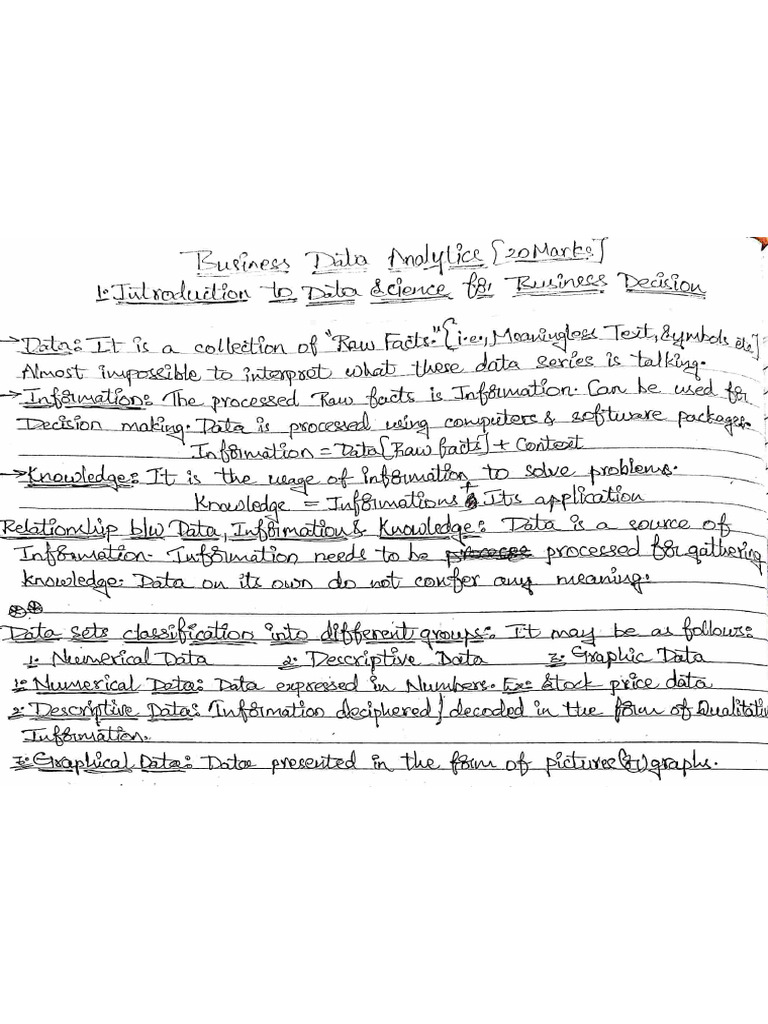 Business Data Analytics [20 Marks]
1. Introduction to Data Science for Business Decision
→ Data: It is a collection of "Raw Facts." {i.e., Meaningless Text, Symbols etc]
Almost impossible to interpret what these data series is talking.
→ Information: The processed Raw facts is Information. Can be used for
Decision making. Data is processed using computers & software packages.
Information = Data[Raw facts] + Context
→ Knowledge: It is the usage of information to solve problems.
Knowledge = Informations + Its application
Relationship b/w Data, Information & Knowledge: Data is a source of
Information. Information needs to be processed for gathering
Knowledge. Data on its own do not confer any meaning.
Data sets classification into different groups: It may be as follows:
1. Numerical Data 2. Descriptive Data 3. Graphic Data
1. Numerical Data: Data expressed in Numbers. Ex: Stock price data
2. Descriptive Data: Information deciphered/decoded in the form of Qualitativ
Information.
3. Graphical Data: Data presented in the form of pictures (or) graphs.